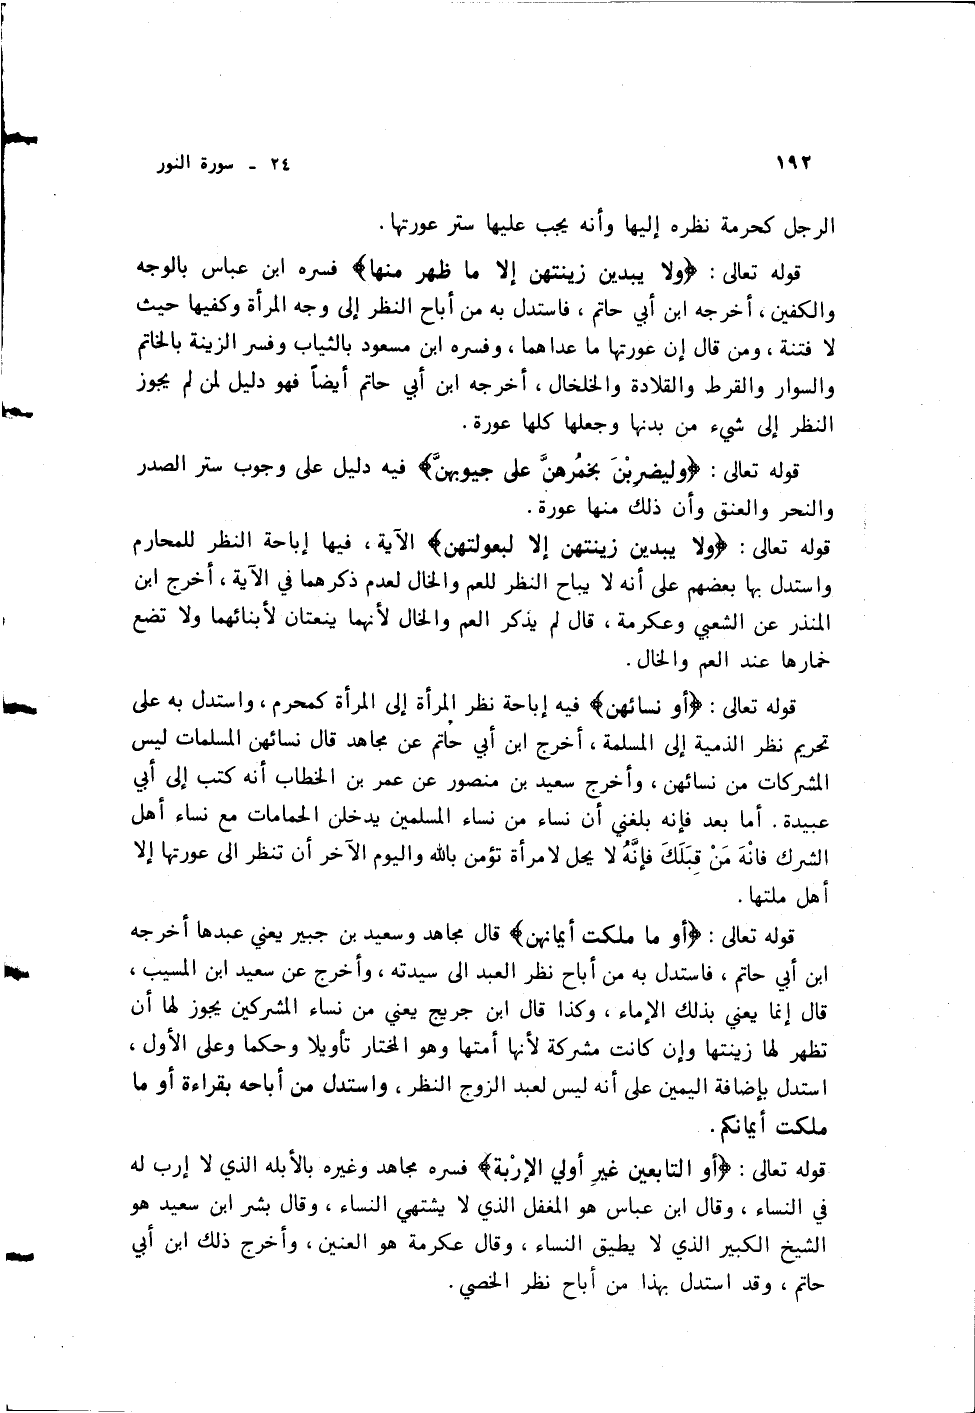 ١٩٢
٢٤ ـ سورة النور
الرجل كحرمة نظره إليها وأنه يجب عليها ستر عورتها.
قوله تعالى : ﴿ولا يبدين زينتهن إلا ما ظهر منها﴾ فسره ابن عباس بالوجه
والكفين ، أخرجه ابن أبي حاتم ، فاستدل به من أباح النظر إلى وجه المرأة وكفيها حيث
لا فتنة ، ومن قال إن عورتها ما عداهما ، وفسره ابن مسعود بالثياب وفسر الزينة بالخاتم
والسوار والقرط والقلادة والخلخال ، أخرجه ابن أبي حاتم أيضاً فهو دليل لمن لم يجوز
النظر إلى شيء من بدنها وجعلها كلها عورة .
قوله تعالى : ﴿وليضرِبْنَ بخمُرهنَّ على جيوبهنَّ﴾ فيه دليل على وجوب ستر الصدر
والنحر والعنق وأن ذلك منها عورة .
قوله تعالى : ﴿ولا يبدين زينتهن إلا لبعولتهن﴾ الآية ، فيها إباحة النظر للمحارم
واستدل بها بعضهم على أنه لا يباح النظر للعم والخال لعدم ذكرهما في الآية ، أخرج ابن
المنذر عن الشعبي وعكرمة ، قال لم يذكر العم والخال لأنهما ينعتان لأبنائهما ولا تضع
خمارها عند العم والخال .
قوله تعالى : ﴿أو نسائهن﴾ فيه إباحة نظر المرأة إلى المرأة كمحرم ، واستدل به على
تحريم نظر الذمية إلى المسلمة ، أخرج ابن أبي حاتم عن مجاهد قال نسائهن المسلمات ليس
المشركات من نسائهن ، وأخرج سعيد بن منصور عن عمر بن الخطاب أنه كتب إلى أبي
عبيدة . أما بعد فإنه بلغني أن نساء من نساء المسلمين يدخلن الحمامات مع نساء أهل
الشرك فانْهَ مَنْ قِبَلَكَ فإنَّهُ لا يحل لامرأة تؤمن بالله واليوم الآخر أن تنظر الى عورتها إلا
أهل ملتها .
قوله تعالى : ﴿أو ما ملكت أيمانهن﴾ قال مجاهد وسعيد بن جبير يعني عبدها أخرجه
ابن أبي حاتم ، فاستدل به من أباح نظر العبد الى سيدته ، وأخرج عن سعيد ابن المسيب ،
قال إنما يعني بذلك الإماء ، وكذا قال ابن جريج يعني من نساء المشركين يجوز لها أن
تظهر لها زينتها وإن كانت مشركة لأنها أمتها وهو المختار تأويلا وحكما وعلى الأول ،
استدل بإضافة اليمين على أنه ليس لعبد الزوج النظر ، واستدل من أباحه بقراءة أو ما
ملكت أيمانكم .
قوله تعالى : ﴿أو التابعين غيرِ أولي الإرْبة﴾ فسره مجاهد وغيره بالأبله الذي لا إرب له
في النساء ، وقال ابن عباس هو المغفل الذي لا يشتهي النساء ، وقال بشر ابن سعيد هو
الشيخ الكبير الذي لا يطيق النساء ، وقال عكرمة هو العنين ، وأخرج ذلك ابن أبي
حاتم ، وقد استدل بهذا من أباح نظر الخصي .